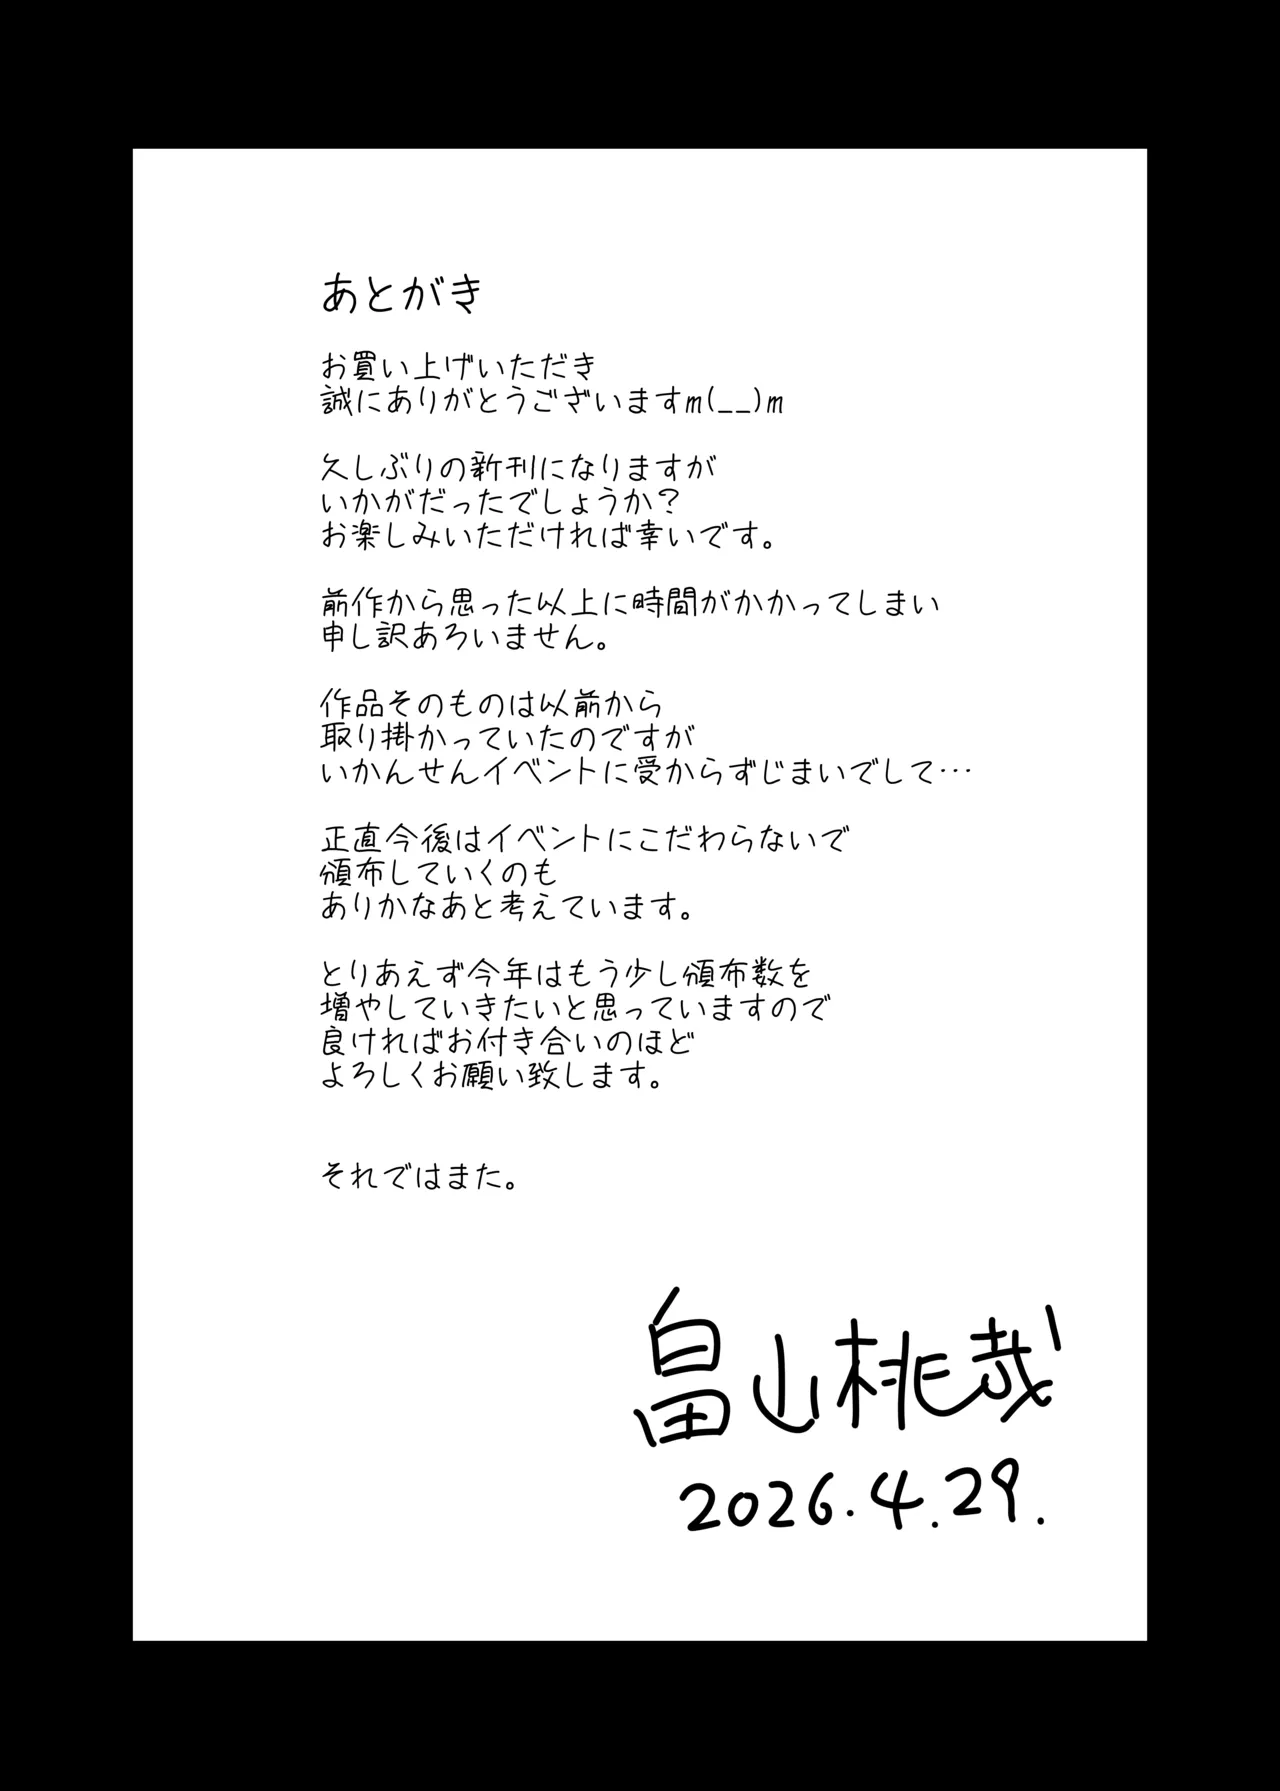 あとがき
お買い上げいただき
誠にありがとうございますm(__)m
久しぶりの新刊になりますが
いかがだったでしょうか？
お楽しみいただければ幸いです。
前作から思った以上に時間がかかってしまい
申し訳あろいません。
作品そのものは以前から
取り掛かっていたのですが
いかんせんイベントに受からずじまいでして…
正直今後はイベントにこだわらないで
頒布していくのも
ありかなあと考えています。
とりあえず今年はもう少し頒布数を
増やしていきたいと思っていますので
良ければお付き合いのほど
よろしくお願い致します。
それではまた。
畠山桃哉
2026.4.29.